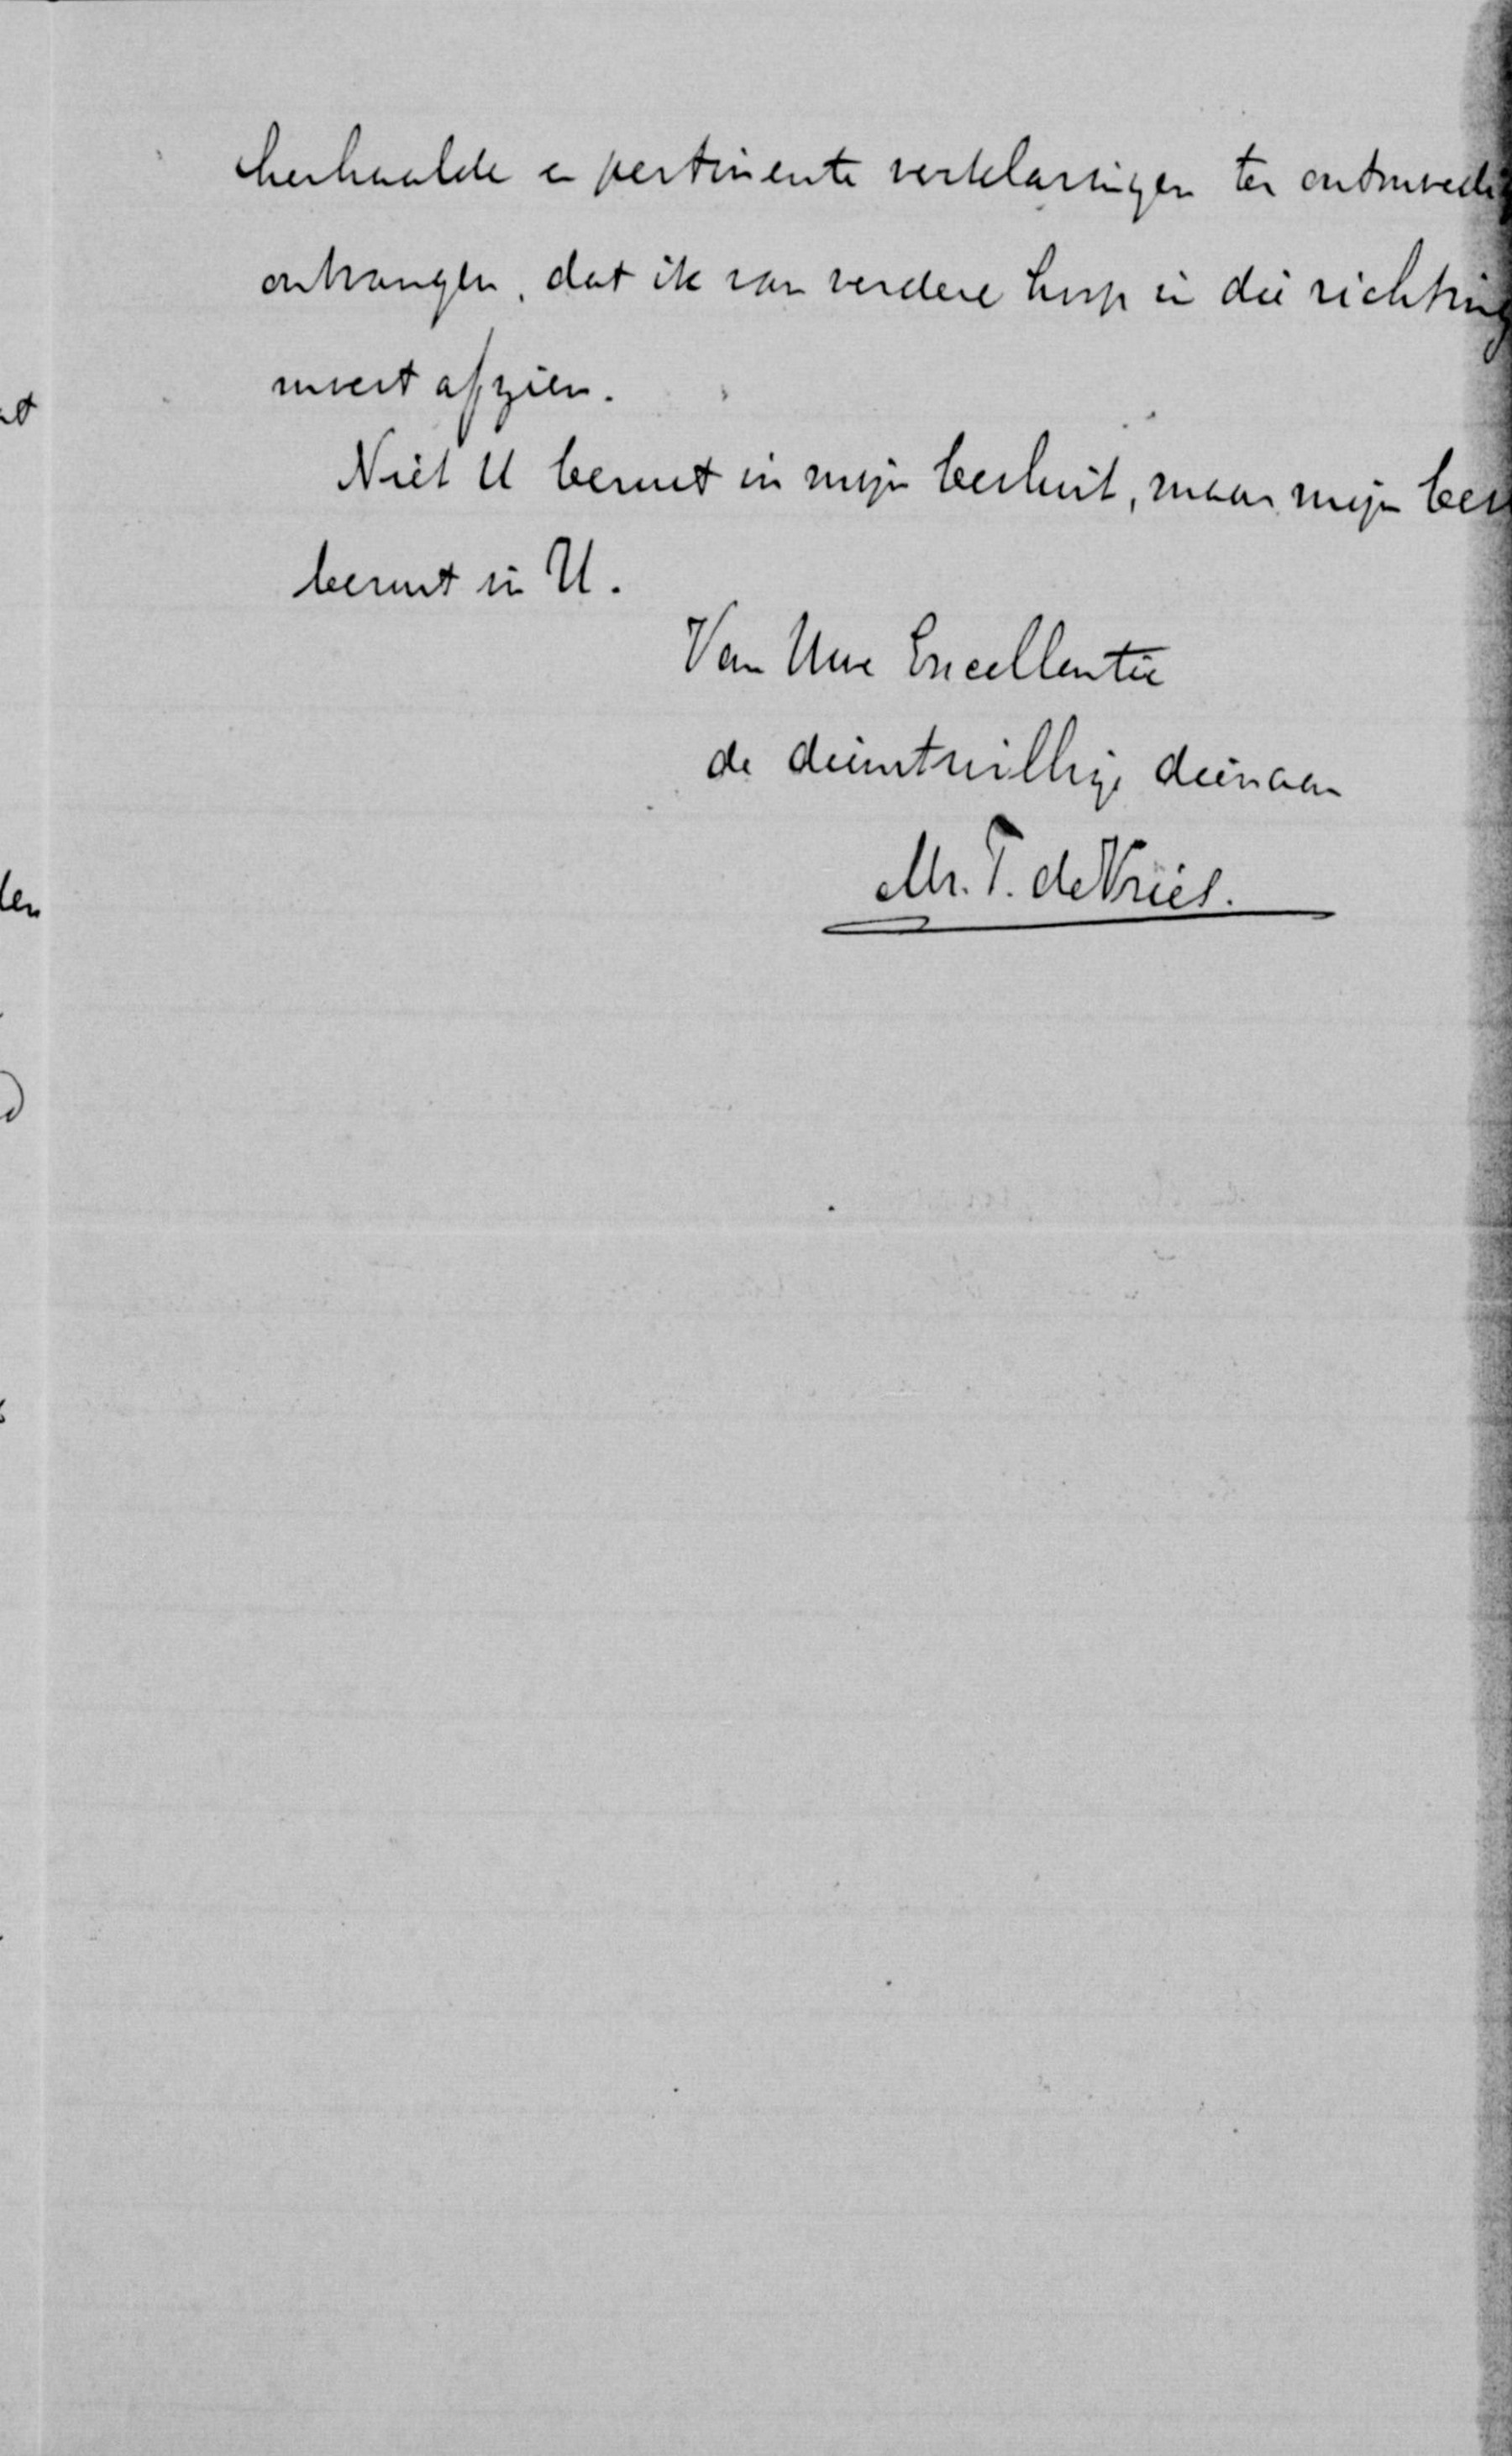 herhaalde en pertinente verklaringen ten antwoord
ontvangen, dat ik van verdere hoop in die richting
moest afzien.
Niet U berust in mijn besluit, maar mijn bes
berust in U.
Van Uwe Excellentie
de dienstwillige dienaar
Mr. T. de Vries.